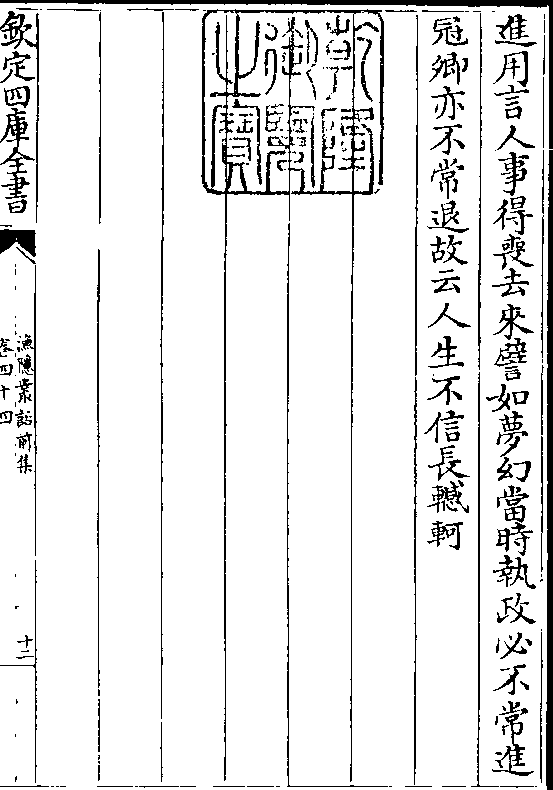 進用言人事得喪去來譬如夢幻當時執政必不常進
冠卿亦不常退故云人生不信長轗軻
乾隆御覽之寶
欽定四庫全書
漁隱叢話前集
卷四十四
十二